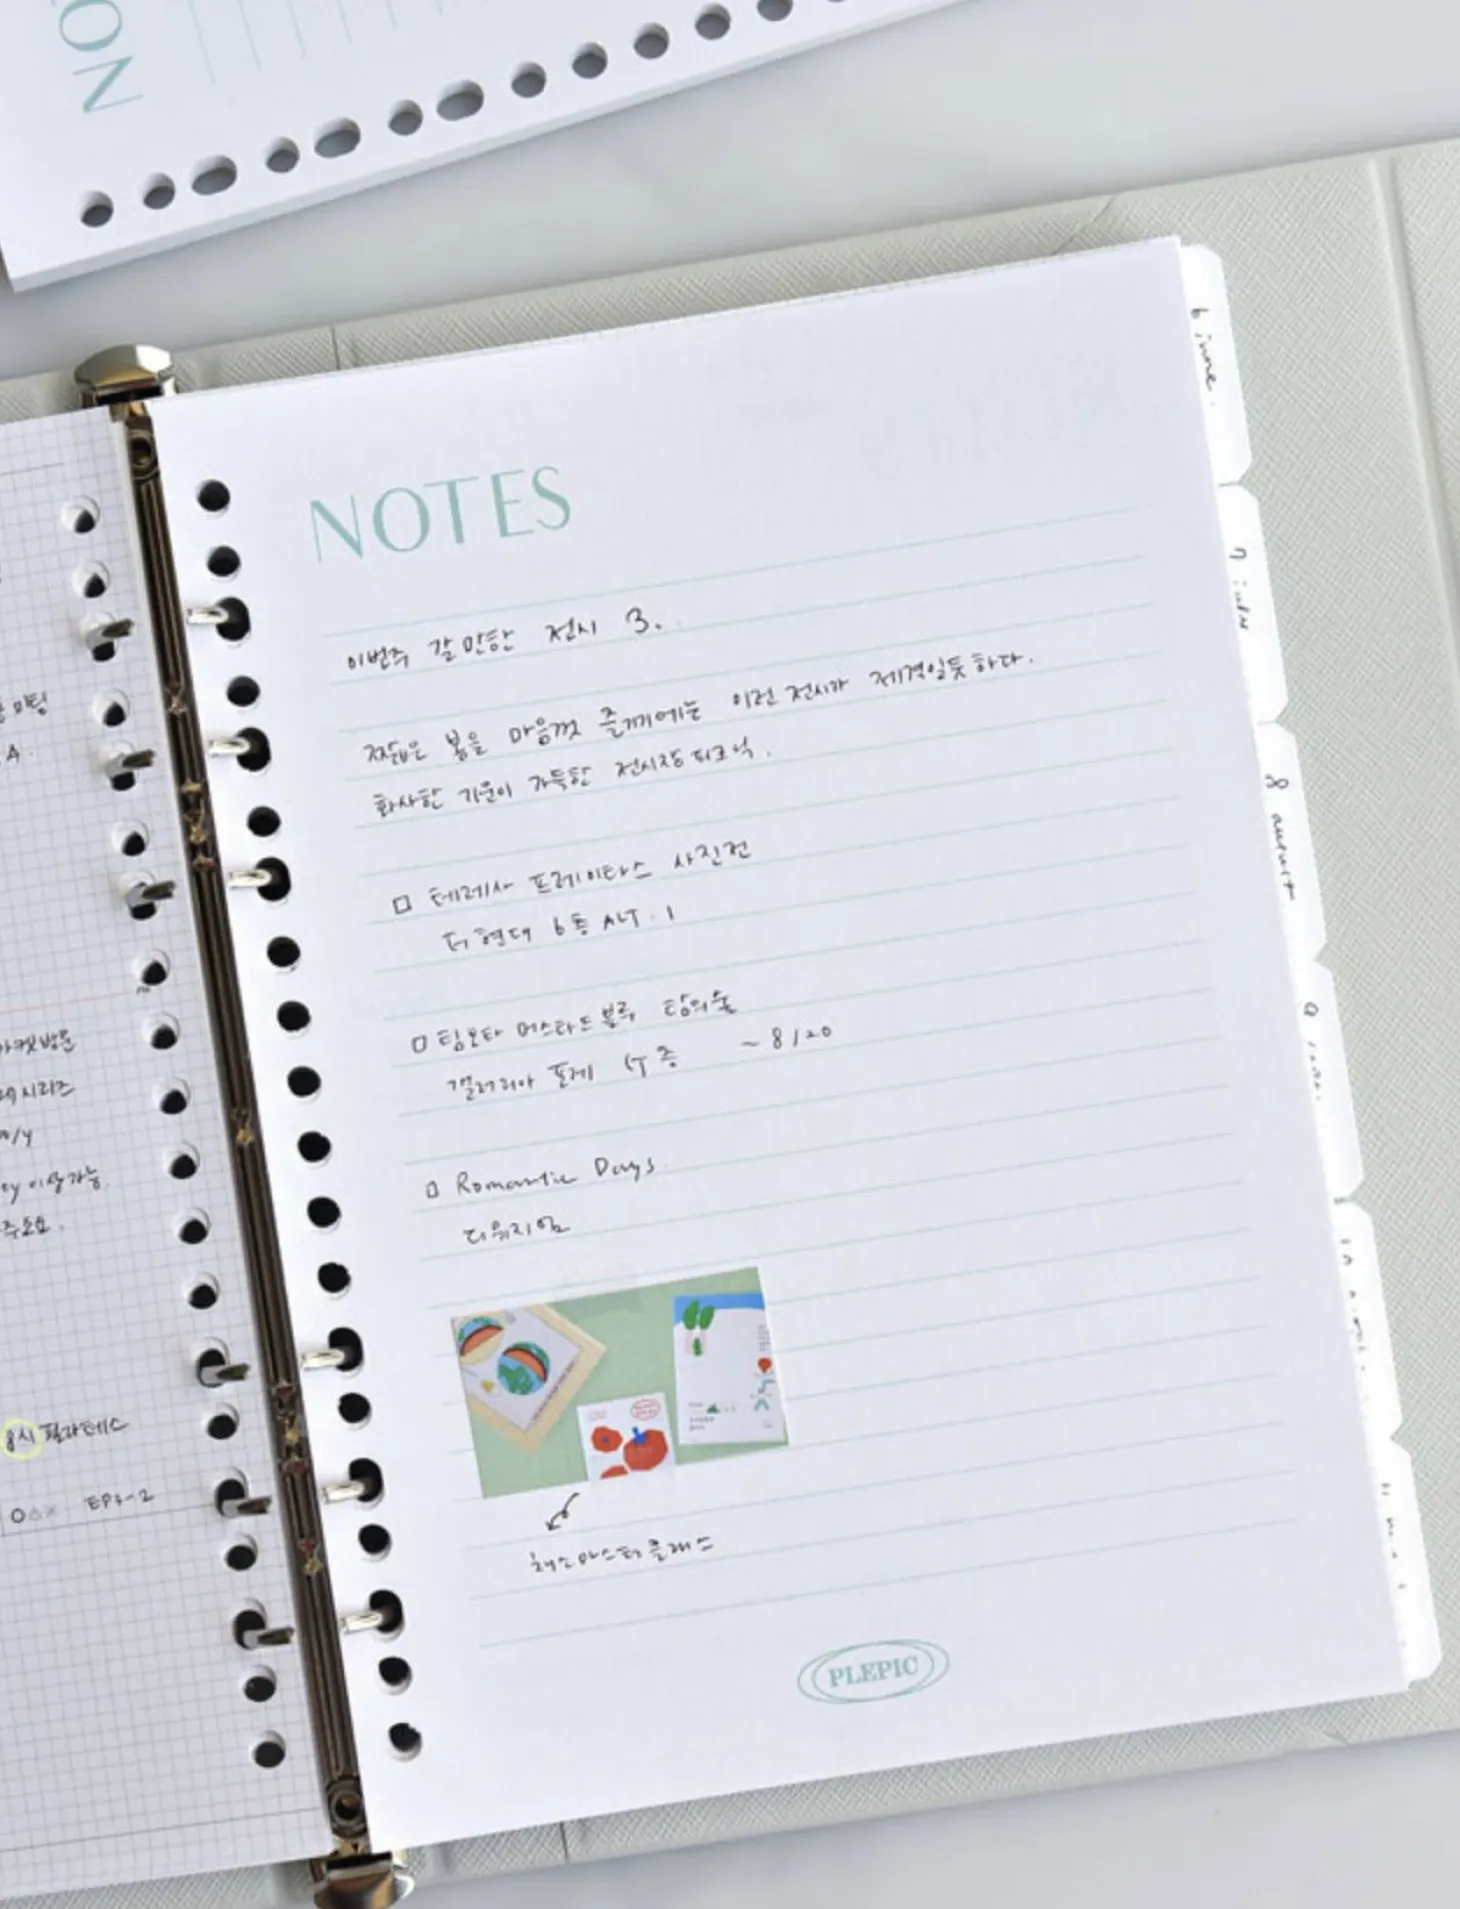 NO
NOTES
이번주 갈만한 전시 3.
짧은 봄을 마음껏 즐기기에는 이런 전시가 제격일듯하다.
화사한 기운이 가득한 전시장 피크닉.
□ 테레사 프레이타스 사진전
더현대 6층 ALT.1
□ 팀보타 머스타드블루 탐의숲
갤러리아 포레 G층 ~8/20
□ Romantic Days.
디뮤지엄
채소마스터클래스
PLEPIC
미팅
A.
마켓방문
시리즈
이상가능
주요.
8시 필라테스
O△× EP1-2
6 june.
7 july
8 august